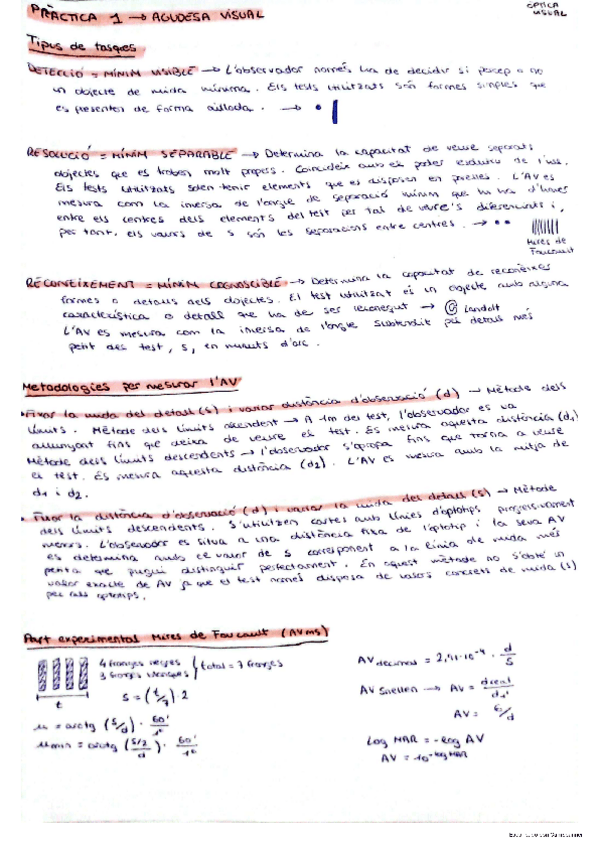 PRÀCTICA 1 → AGUDESA VISUAL
ÒPTICA
VISUAL
Tipus de tasques
DETECCIÓ = MÍNIM VISIBLE → L'observador només ha de decidir si percep o no
un objecte de mida mínima. Els tests utilitzats són formes simples que
es presenten de forma aïllada. →
RESOLUCIÓ = MÍNIM SEPARABLE → Determina la capacitat de veure separats
objectes que es troben molt propers. Coincideix amb el poder resolutiu de l'ull.
Els tests utilitzats solen tenir elements que es disposen en parelles. L'AV es
mesura com la inversa de l'angle de separació mínim que hi ha d'haver
entre els centres dels elements del test per tal de veure's diferenciats i,
per tant, els valors de s són les separacions entre centres. →
Mires de
Foucault
RECONEIXEMENT = MÍNIM COGNOSCIBLE → Determina la capacitat de reconèixer
formes o detalls dels objectes. El test utilitzat és un objecte amb alguna
característica o detall que ha de ser reconegut → Landolt
L'AV es mesura com la inversa de l'angle subtendit pel detall més
petit del test, s, en minuts d'arc.
Metodologies per mesurar l'AV
• Fixar la mida del detall (s) i variar distància d'observació (d) → Mètode dels
límits. Mètode dels límits ascendent → A 1m del test, l'observador es va
allunyant fins que deixa de veure el test. Es mesura aquesta distància (d1)
Mètode dels límits descendents → l'observador s'apropa fins que torna a veure
el test. Es mesura aquesta distància (d2). L'AV es mesura amb la mitja de
d1 i d2.
• Fixar la distància d'observació (d) i variar la mida del detall (s) → Mètode
dels límits descendents. S'utilitzen cartes amb línies d'optotips progressivament
menors. L'observador es situa a una distància fixa de l'optotip i la seva AV
es determina amb el valor de s corresponent a la línia de mida més
petita que pugui distinguir perfectament. En aquest mètode no s'obté un
valor exacte de AV ja que el test només disposa de valors concrets de mida (s)
pels optotips.
Part experimental Mires de Foucault (AVms)
4 franges negres
3 franges blanques
total = 7 franges
t
s = (t/7) · 2
u = arctg (s/d) · 60'/1º
umin = arctg ((s/2)/d) · 60'/1º
AV decimal = 2,91·10⁻⁴ · d/s
AV Snellen →
AV = 6/d
log MAR = -log AV
AV = 10^-log MAR